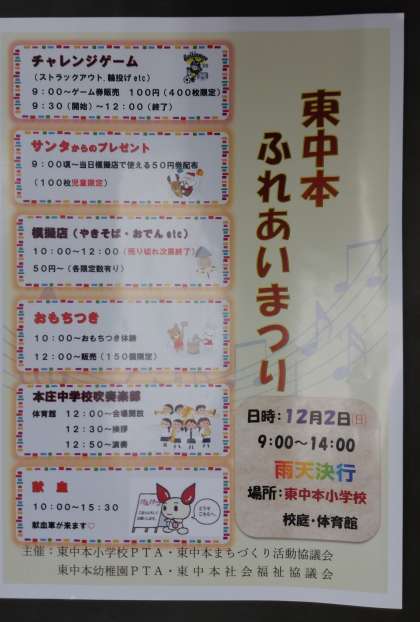 東中本
ふれあいまつり
チャレンジゲーム
（ストラックアウト，輪投げetc）
９：００～ゲーム券販売　１００円（４００枚限定）
９：３０（開始）～１２：００（終了）
サンタからのプレゼント
９：００頃～当日模擬店で使える５０円券配布
（１００枚児童限定）
模擬店（やきそば・おでんetc）
１０：００～１２：００（売り切れ次第終了）
５０円～（各限定数有り）
おもちつき
１０：００～おもちつき体験
１２：００～販売（１５０個限定）
本庄中学校吹奏楽部
体育館　１２：００～会場開放
１２：３０～挨拶
１２：５０～演奏
献血
１０：００～１５：３０
献血車が来ます♡
日時：12月2日(日)
9:00～14:00
雨天決行
場所：東中本小学校
校庭・体育館
主催：東中本小学校ＰＴＡ・東中本まちづくり活動協議会
東中本幼稚園ＰＴＡ・東中本社会福祉協議会